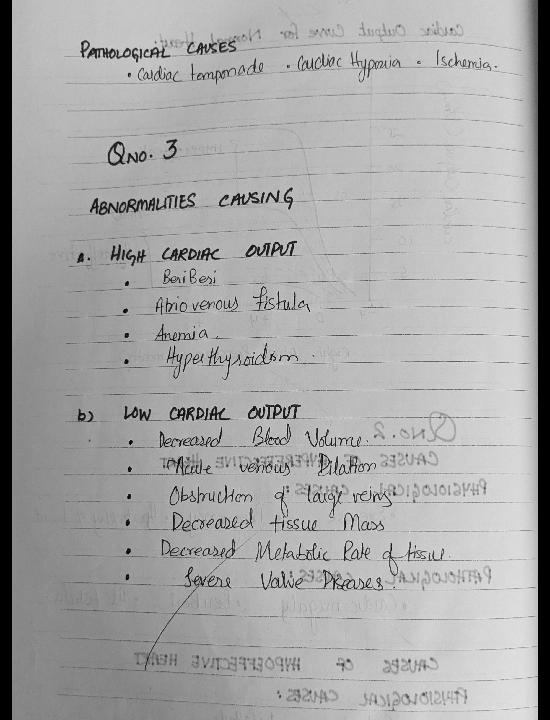 PATHOLOGICAL CAUSES
• Cardiac tamponade • Cardiac Hypoxia • Ischemia.
QNO. 3
ABNORMALITIES CAUSING
a. HIGH CARDIAC OUTPUT
• BeriBeri
• Atrio venous fistula
• Anemia.
• Hyperthyroidsm.
b) LOW CARDIAC OUTPUT
• Decreased Blood Volume.
• Acute venous Dilation
• Obstruction of large veins
• Decreased tissue Mass
• Decreased Metabolic Rate of tissue.
• Severe Valve Diseases.